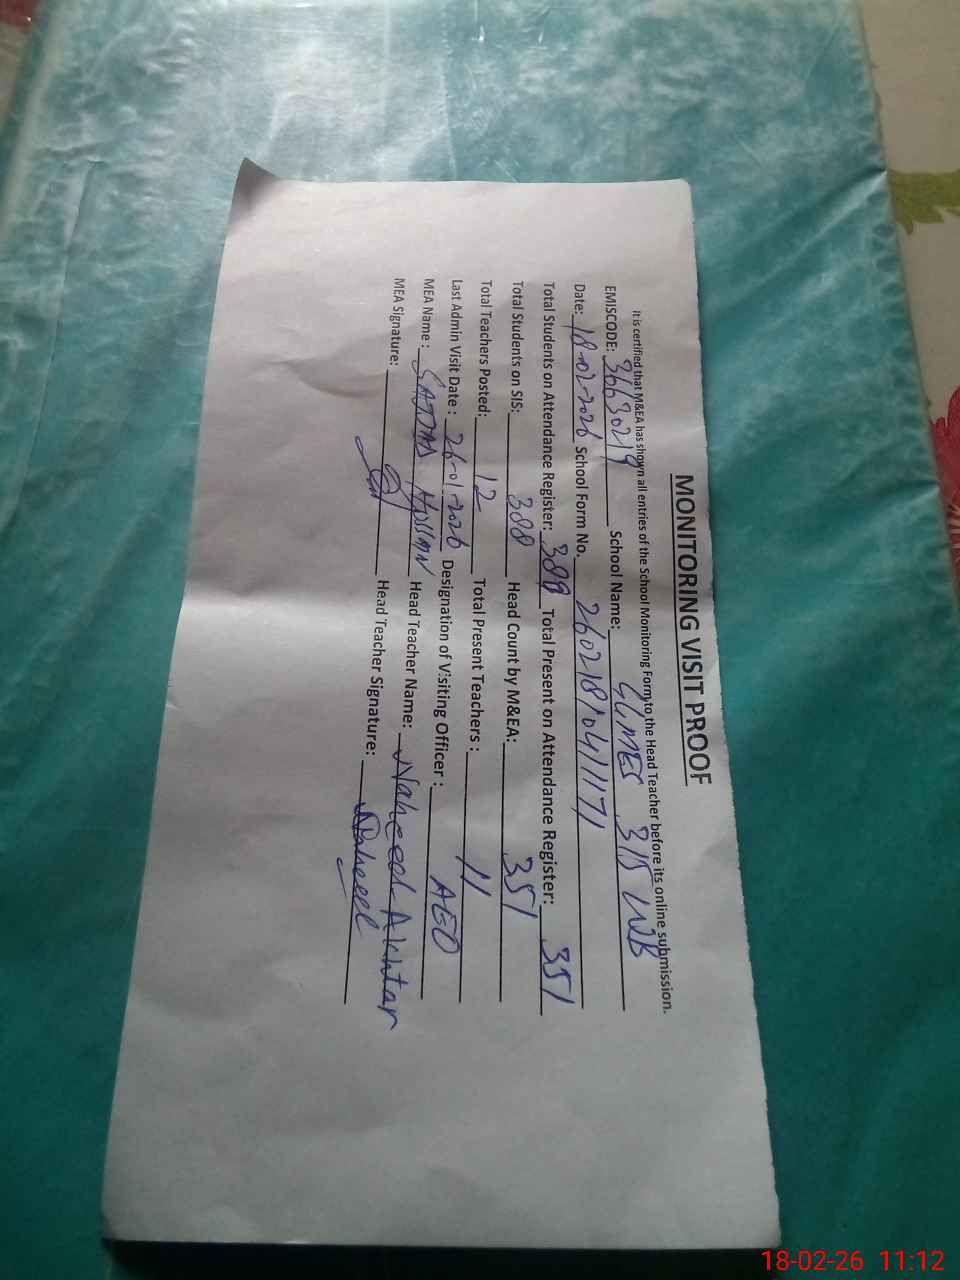 MONITORING VISIT PROOF
It is certified that M&EA has shown all entries of the School Monitoring Form to the Head Teacher before its online submission.
EMISCODE: 36630219 School Name: GGMES 315 WB
Date: 18-02-2026 School Form No. 26021810411171
Total Students on Attendance Register: 388 Total Present on Attendance Register: 351
Total Students on SIS: 388 Head Count by M&EA: 351
Total Teachers Posted: 12 Total Present Teachers : 11
Last Admin Visit Date : 26-01-2026 Designation of Visiting Officer : AEO
MEA Name : SAJJAD HASSAN Head Teacher Name: Naheed Akhtar
MEA Signature: Head Teacher Signature: Naheed
18-02-26 11:12